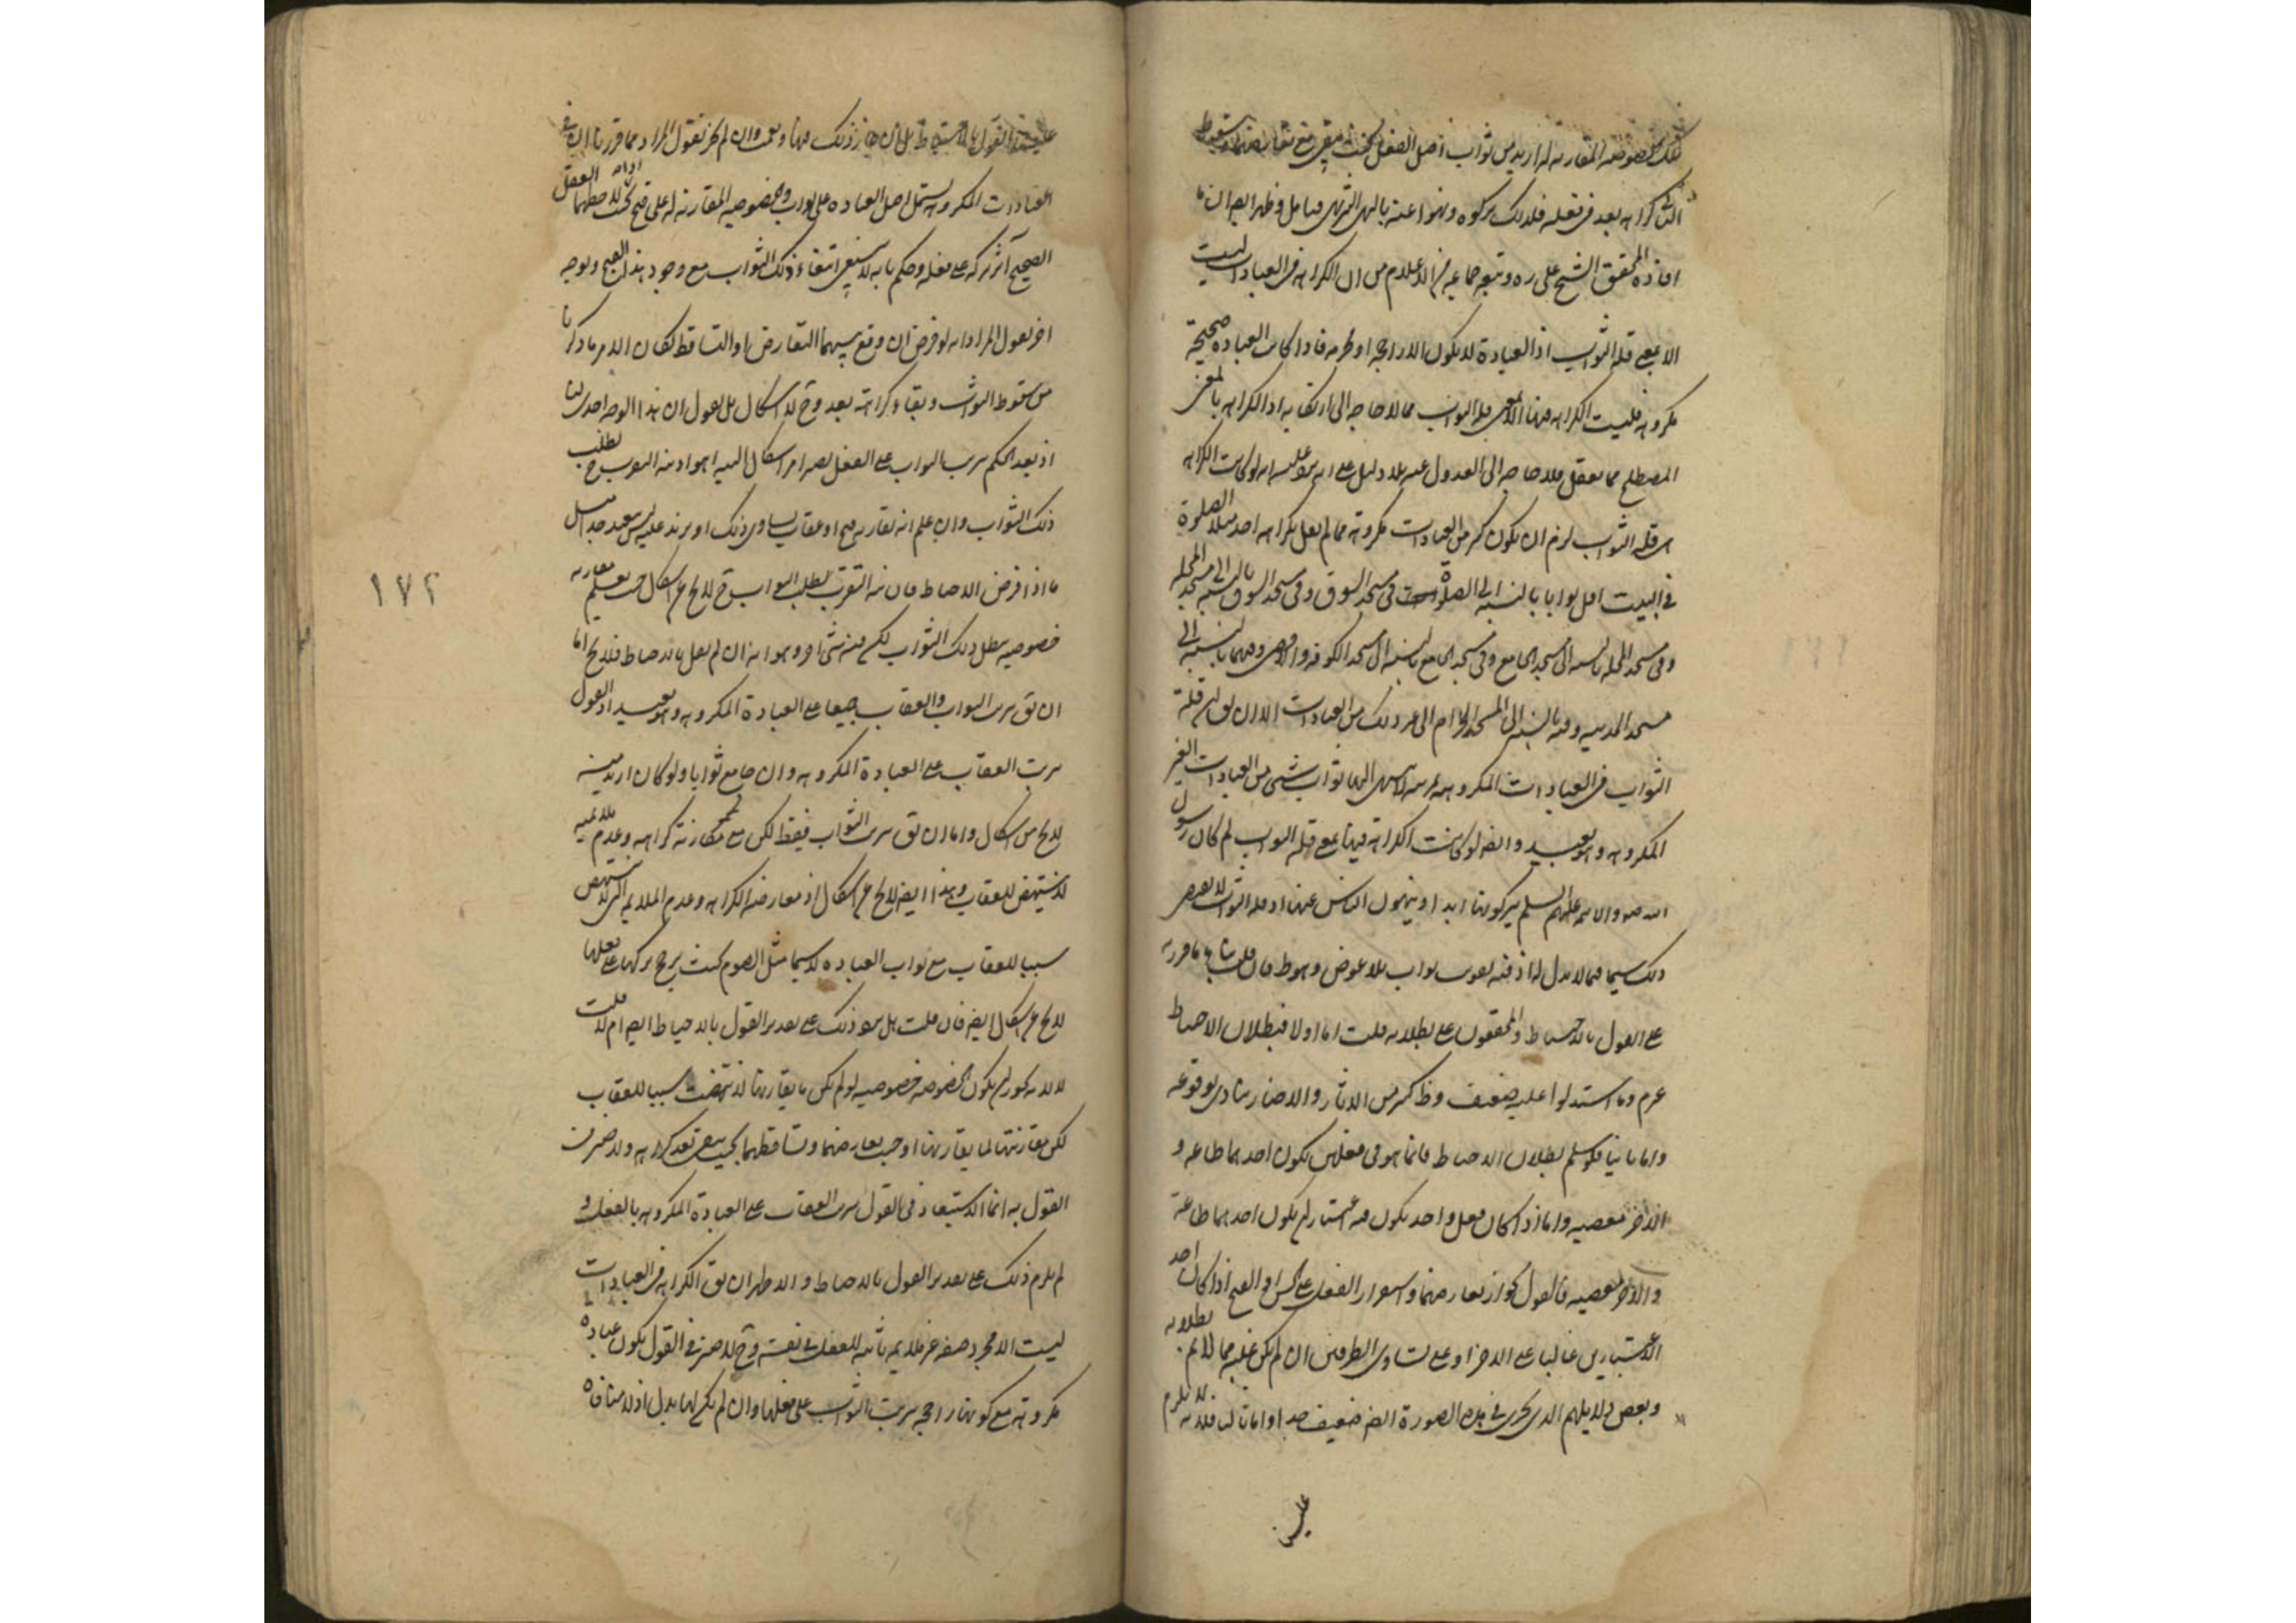 تلك الخصوصية المقارنة له ازيد من ثواب اصل الفعل بحيث يبقى مع تعارضهما وسقوط
الثواب كراهه بعد في فعله فلذلك تركوه ونهوا عنه بالنهي التنزيهي فتامل وظهر ايضا ان ما
افاده المحقق الشيخ علي ره وتبعه جماعة من الاعلام من ان الكراهه في العبادات ليست
الا بمعنى قلة الثواب اذ العبادة لا يكون الا راجحه او محرمه فاذا كانت العباده صحيحة
مكروهه فليست الكراهه فيها الا بمعنى قلة الثواب مما لا حاجه الى ارتكابه اذ الكراهه بالمعنى
المصطلح مما يعقل فلا حاجه الى العدول عنه بلا دليل على انه يرد عليه انه لو كانت الكراهه
هي قلة الثواب لزم ان يكون كثير من العبادات مكروهة مما لم يقل بكراهه احد مثلا الصلوة
في البيت اقل ثوابا بالنسبه الى الصلوة في مسجد السوق وفي مسجد السوق بالنسبه الى مسجد المحلة
وفي مسجد المحله بالنسبه الى مسجد الجامع وفي مسجد الجامع بالنسبه الى مسجد الكوفه والاقصى وفيهما بالنسبه الى
مسجد المدينه وفيه بالنسبه الى المسجد الحرام الى غير ذلك من العبادات الا ان يق ان قلة
الثواب في العبادات المكروهه بمرتبه لا ينتهي اليها ثواب شيء من العبادات الغير
المكروهه وهو بعيد وايضا لو كانت الكراهة فيها بمعنى قلة الثواب لم كان رسول
الله ص والائمه عليهم السلم يتركونها ابدا وينهون الناس عنها اذ قلة الثواب لا يقتضي
ذلك سيما فيما لا بدل له اذ فيه تفويت ثواب بلا عوض وهو ظ فان قلت ما قررته
على القول بالاحباط والمحققون على بطلانه قلت اما اولا فبطلان الاحباط
غير تم وما استدلوا عليه ضعيف وظ كثير من الاثار والاخبار ينادي بوقوعه
واما ثانيا فلو سلم بطلان الاحباط فانما هو في فعلين يكون احدهما طاعه و
الاخر معصيه واما اذا كان فعل واحد يكون فيه اعتباران يكون احدهما طاعة
والاخر معصيه فالقول بجواز تعارضهما واستقرار الفعل على الحسن او القبح اذا كان احد
الاعتبارين غالبا على الاخر او على تساوي الطرفين ان لم يكن غلبه مما لا يتم بطلانه
وبعض دلايلهم الذي يجري في هذه الصورة ايضا ضعيف جدا واما ثالثا فلانه لا يلزم
علينا
علينا القول بالاحباط بل ان جاز ذلك فبها ونعمت وان لم يجز نقول المراد مما قررنا ان في
العبادات المكروهه يشتمل اصل العباده على ثواب وخصوصيه المقارنه له على قبح بحيث اذا لاحظهما العقل
الصحيح آثر تركه على فعله وحكم بانه لا ينبغي ابتغاء ذلك الثواب مع وجود هذا القبح وبوجه
اخر نقول المراد انه لو فرض ان وقع بينهما التعارض والتساقط لكان الامر ما ذكرنا
من سقوط الثواب وبقاء كراهته بعد وح لا اشكال بل نقول ان هذا الوجه اجدى لنا
اذ بعد الحكم بترتب الثواب على الفعل يصير امر اشكال النيه اهون اذ نية التقرب ح لطلب
ذلك الثواب وان علم انه يقارنه قبح او عقاب يساوي ذلك او يزيد عليه ليس ببعيد جدا مثل
ما اذا فرض الاحباط فان نية التقرب بطلب الثواب ح لا يخ عن اشكال حيث يعلم مقارنة
خصوصيه يبطل ذلك الثواب لكن فيه شيء اخر وهو انه ان لم يقل بالاحباط فلا يخ اما
ان يق بترتب الثواب والعقاب جميعا على العبادة المكروهه وهو بعيد اذ القول
بترتب العقاب على العبادة المكروهه وان جامع ثوابا ولو كان ازيد منه
لا يخ من اشكال واما ان يق بترتب الثواب فقط لكن مع مقارنة كراهه وعدم ملائميه
لا ينتهض للعقاب وهذا ايضا لا يخ عن اشكال اذ معارضه الكراهه وعدم الملائمه التي لا ينتهض
سببا للعقاب مع ثواب العباده لا سيما مثل الصوم بحيث يرجح تركها على فعلها
لا يخ عن اشكال ايضا فان قلت هل يرد ذلك على تقدير القول بالاحباط ايضا ام لا قلت
لا لانه يجوز ان يكون الخصوصيه خصوصيه لو لم يكن ما يقارنها لانتهضت سببا للعقاب
لكن مقارنتها لما يقارنها اوجب تعارضهما وتساقطهما بحيث يبقى بعد كراهه ولا ضير في
القول به انما الاستبعاد في القول بترتب العقاب على العبادة المكروهه بالفعل و
لم يلزم ذلك على تقدير القول بالاحباط والاظهر ان يق الكراهه في العبادات
ليست الا مجرد صفه غير ملايمه ثابته للفعل في نفسه وح لا ضير في القول بكون عباده
مكروهة مع كونها راجحه بترتب الثواب على فعلها وان لم يكن لها بدل اذ لا منافاه
١٧٢